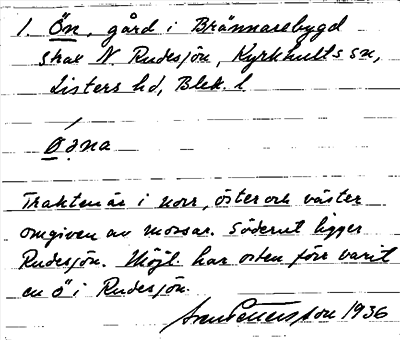 1. Ön, gård i Brännarebygd
skae N. Rudesjön, Kyrkhults sn,
Listers hd, Blek. l
Ö́ǝna
Trakten är i norr, öster och väster
omgiven av mossar. Söderut ligger
Rudesjön. Möjl. har orten förr varit
en ö i Rudesjön.
Sven Pettersson 1936